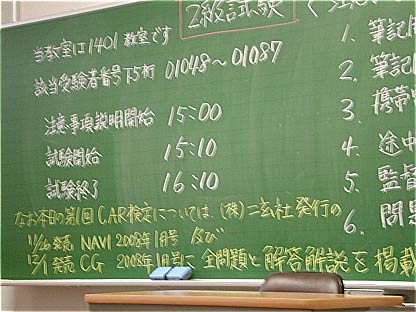 2級試験
当教室は1401教室です
該当受験者番号下5桁 01048～01087
注意事項説明開始 15:00
試験開始 15:10
試験終了 16:10
なお本日の第1回CAR検定については、(株)二玄社発行の
11/26発売 NAVI 2008年1月号 及び
12/1発売 CG 2008年1月号に全問題と解答解説を掲載
1. 筆記
2. 筆記
3. 携帯
4. 途中
5. 監督
6. 問